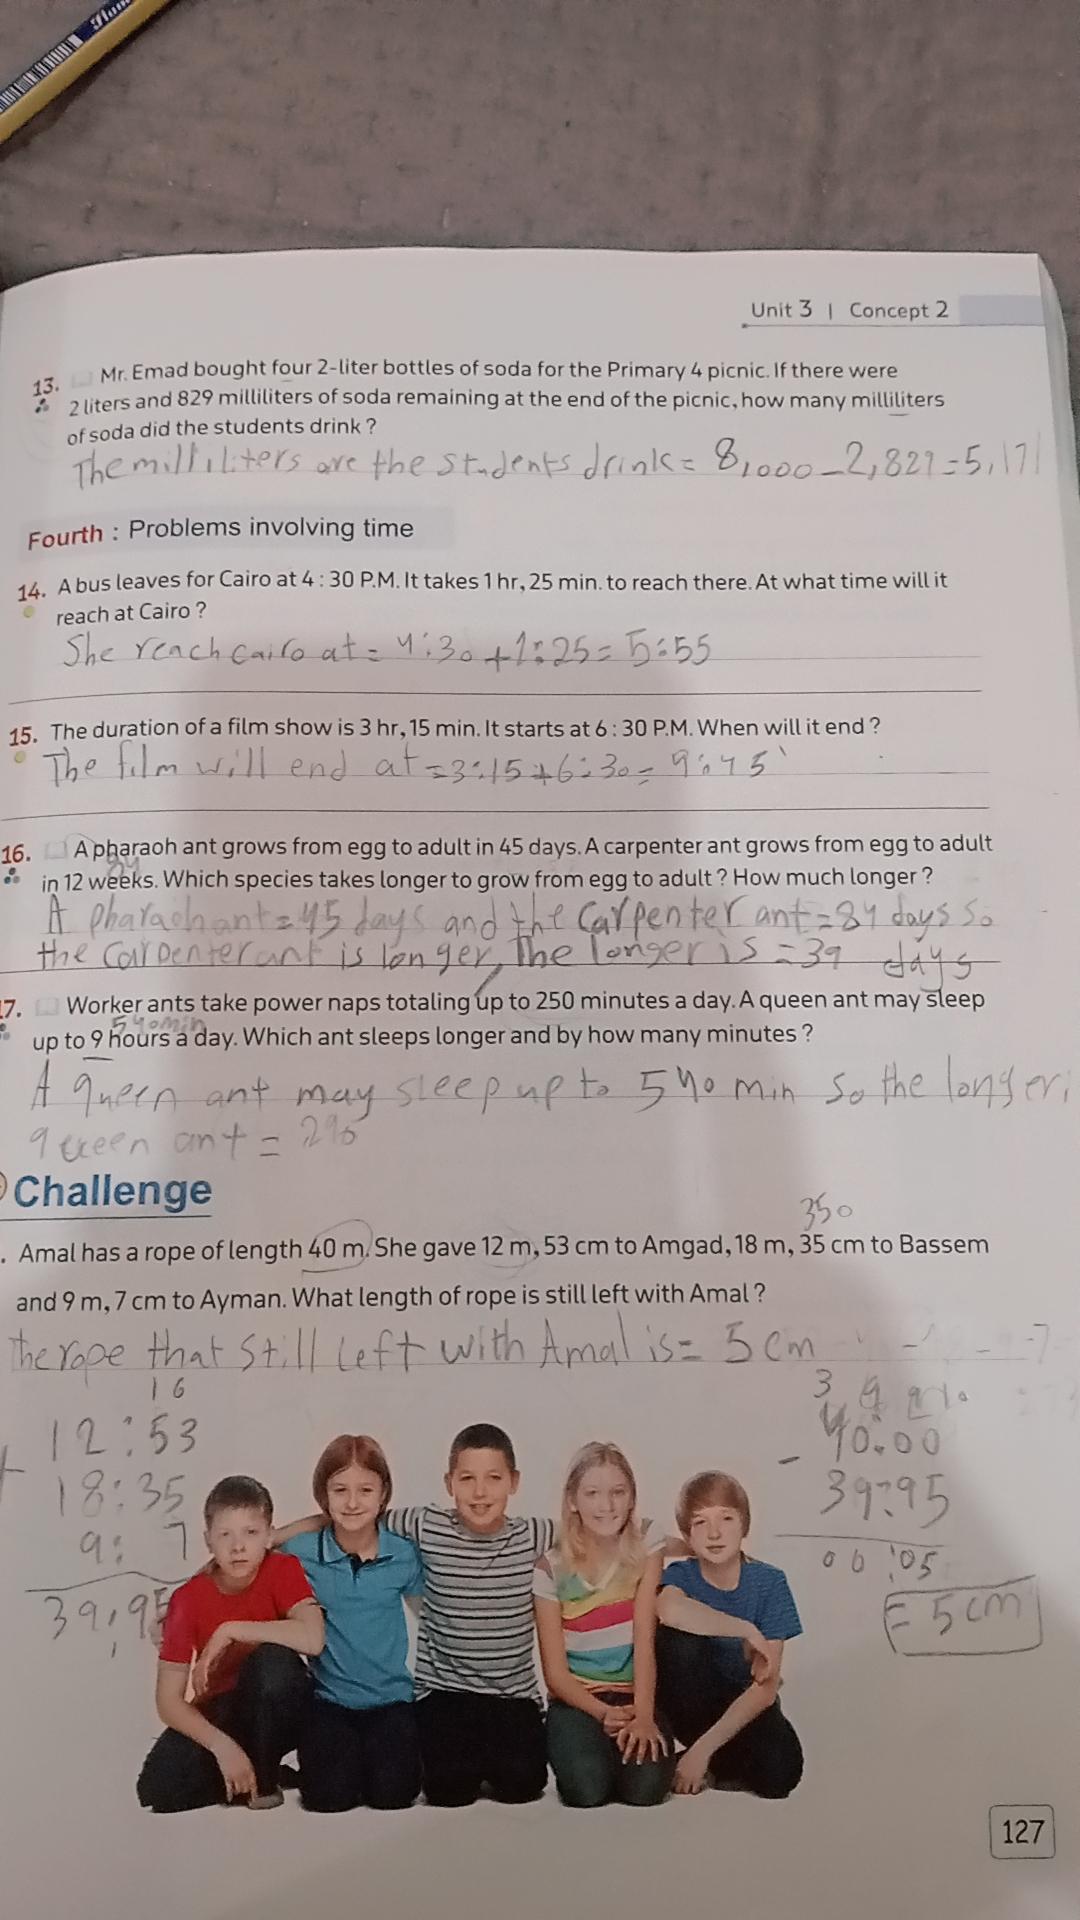 Unit 3 | Concept 2
13. Mr. Emad bought four 2-liter bottles of soda for the Primary 4 picnic. If there were
2 liters and 829 milliliters of soda remaining at the end of the picnic, how many milliliters
of soda did the students drink ?
The milliliters are the students drink = 8,000 - 2,829 = 5,171
Fourth : Problems involving time
14. A bus leaves for Cairo at 4 : 30 P.M. It takes 1 hr, 25 min. to reach there. At what time will it
reach at Cairo ?
She reach cairo at = 4:30 + 1:25 = 5:55
15. The duration of a film show is 3 hr, 15 min. It starts at 6 : 30 P.M. When will it end ?
The film will end at = 3:15 + 6:30 = 9:45
16. A pharaoh ant grows from egg to adult in 45 days. A carpenter ant grows from egg to adult
84
in 12 weeks. Which species takes longer to grow from egg to adult ? How much longer ?
A pharaoh ant = 45 days and the carpenter ant = 84 days so
the carpenter ant is longer, The longer is = 39 days
17. Worker ants take power naps totaling up to 250 minutes a day. A queen ant may sleep
540 min
up to 9 hours a day. Which ant sleeps longer and by how many minutes ?
A queen ant may sleep up to 540 min so the longer
queen ant =
Challenge
350
. Amal has a rope of length 40 m. She gave 12 m, 53 cm to Amgad, 18 m, 35 cm to Bassem
and 9 m, 7 cm to Ayman. What length of rope is still left with Amal ?
The rope that still left with Amal is = 5 cm
16
12:53
+ 18:35
9: 7
39,95
3 9
40.00
- 39:95
00:05
= 5 cm
127